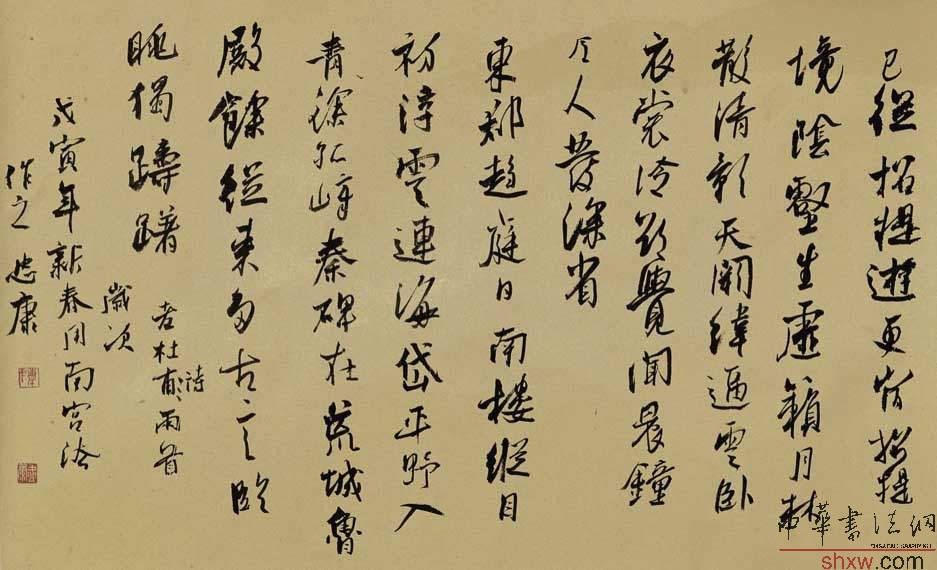 已從招提遊更宿招提
境陰壑生虛籟月林
散清影天闕緯逼雲卧
衣裳冷欲覺聞晨鐘
令人發深省
東郡趨庭日南樓縱目
初浮雲連海岱平野入
青徐孤嶂秦碑在荒城魯
殿餘從来多古意臨
眺獨躊躇
右杜甫詩兩首
歲次
戊寅年新春用南宫法
作之 忠康
中華書法網
shxw.com